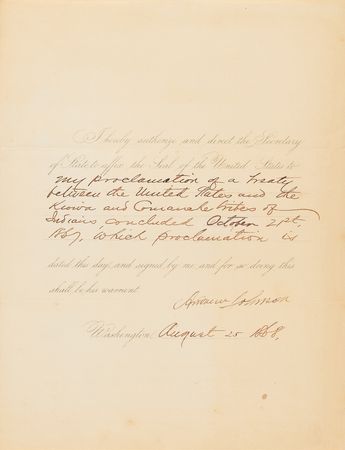 I hereby authorize and direct the Secretary
of State to affix the Seal of the United States to
my proclamation of a Treaty
between the United States and the
Kiowa and Comanche tribes of
Indians, concluded October 21st,
1867, which proclamation is
dated this day, and signed by me, and for so doing this
shall be his warrant.
Andrew Johnson
Washington, August 25 1868.